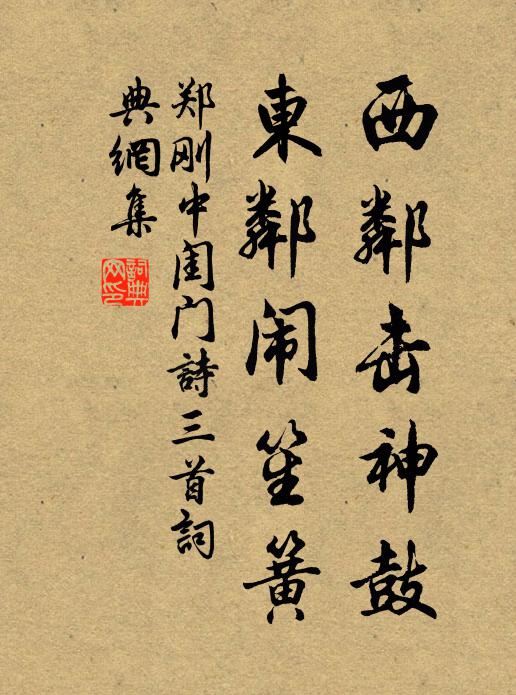 西鄰击神鼓
東鄰闹笙簧
郑刚中闺门詩三首詞
典網集
詞典网印